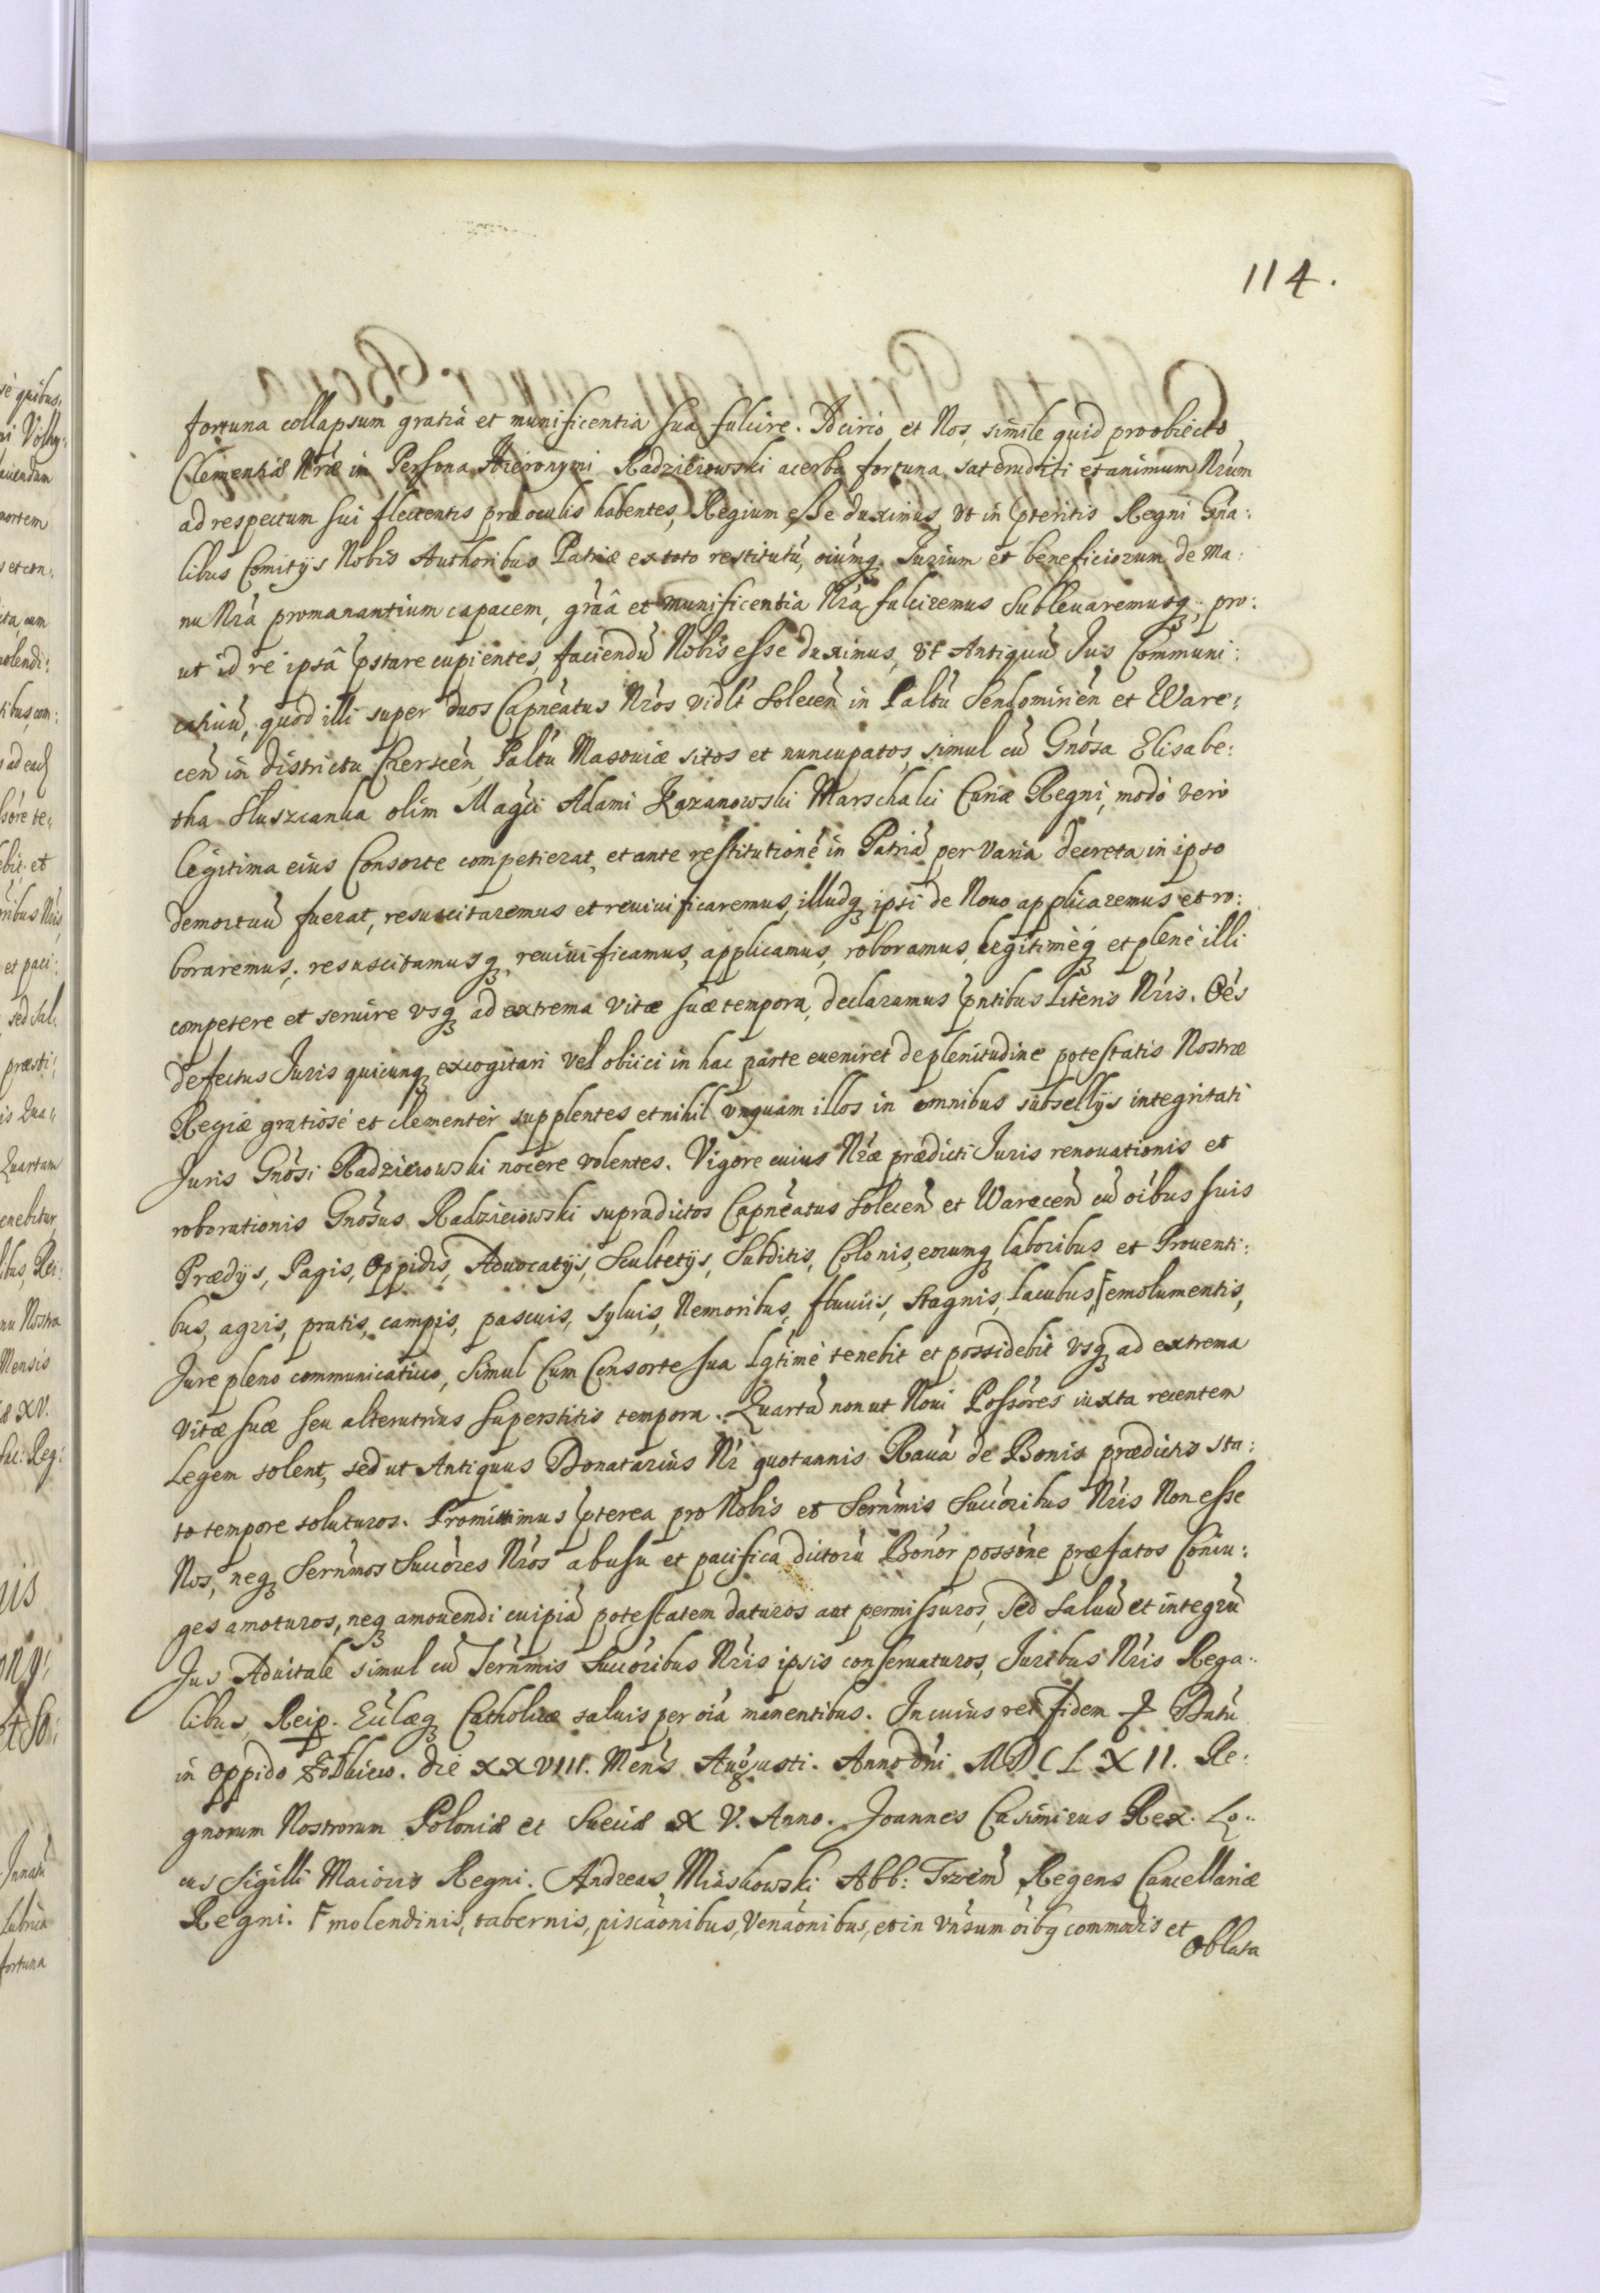 114.
fortuna collapsum gratia et munificentia sua fulcire. Idcirco et Nos, simile quid pro obiecto
Clementiæ Nræ in Persona Hieronymi Radzieiowski acerba fortuna sat eruditi et animum Nrum
ad respectum sui flectentis præ oculis habentes, Regium esse duximus, vt in pteritis Regni Gna:
libus Comitijs Nobis Authoribus Patriæ ex toto restitutũ, oiumq3 Jurium et beneficiorum de Ma:
nu Nrá promanantium capacem, gráâ et munificentia Nrá fulciremus subleuaremusq3, pro:
ut id re ipsâ pstare cupientes, faciendũ Nobis esse duximus, vt Antiquũ Jus Communi:
catiuũ, quod illi super duos Capneatus Nros vidlt Solecen in Paltu Sendomirien et Ware:
cen in districtu Cherscen, Paltu Masouiæ sitos et nuncupatos, simul cũ Gnosa Elisabe:
tha Sluszcanka olim Magci Adami Kazanowski Marschalci Curiæ Regni, modò verò
legitima eius Consorte competierat, et ante restitutionẽ in Patriã per varia decreta in ipso
demortuũ fuerat, resuscitaremus et reuiuificaremus, illudq3 ipsi de Nouo applicaremus et ro:
boraremus, resuscitamusq3, reuiuificamus, applicamus, roboramus, legitimèq3 et plenè illi
competere et seruire vsq3 ad extrema vitæ suæ tempora, declaramus pntibus Literis Nris. Oẽs
defectus Juris quicunq3 excogitari vel obiici in hac parte eueniret de plenitudine potestatis Nostræ
Regiæ gratiosè et clementer supplentes et nihil vnquam illos in omnibus subsellijs integritati
Juris Gnosi Radzieiowski nocere volentes. Vigore cuius Nræ prædicti Juris renouationis et
roborationis Gnosus Radzieiowski supradictos Capneatus Solecen et Warecen cũ oibus suis
Prædijs, Pagis, Oppidis, Aduocatijs, Scultetijs, Subditis, Colonis, eorumq3 laboribus et Prouenti:
bus, agris, pratis, campis, pascuis, syluis, Nemoribus, fluuiis, stagnis, lacubus, Ꞙ emolumentis,
Jure pleno communicatiuo, simul Cum Consorte sua Lgtimè tenebit et possidebit vsq3 ad extrema
vitæ suæ seu alterutrius superstitis tempora. Quartã non ut Noui Possores iuxta recentem
Legem solent, sed ut Antiquus Donatarius Nr quotannis Rauã de Bonis prædictis sta:
to tempore soluturos. Promittimus pterea pro Nobis et Sernmis Succoribus Nris Non esse
Nos, neq3 Sernmos Succores Nros ab usu et pacifica dictorũ Bonor possone præfatos Coniu:
ges amoturos, neq3 amouendi cuipiã potestatem daturos aut permissuros, sed saluũ et integrũ
Jus Aduitale simul cũ Sernmis Succoribus Nris ipsis conseruaturos, Juribus Nris Rega:
libus, Reip. Eclæq3 Catholicæ saluis per oia manentibus. In cuius rei fidem Datũ
in Oppido die XXVIII. Mens Augusti. Anno dni MDCLXII. Re:
gnorum Nostrorum Poloniæ et Sueciæ XV. Anno. Joannes Casimirus Rex. Lo:
cus Sigilli Maioris Regni. Andreas Miaskowski Abb: Trzem Regens Cancellariæ
Regni. Ꞙ molendinis, tabernis, piscaonibus, venaonibus, et in vnsum oibq3 commodis et
Oblata